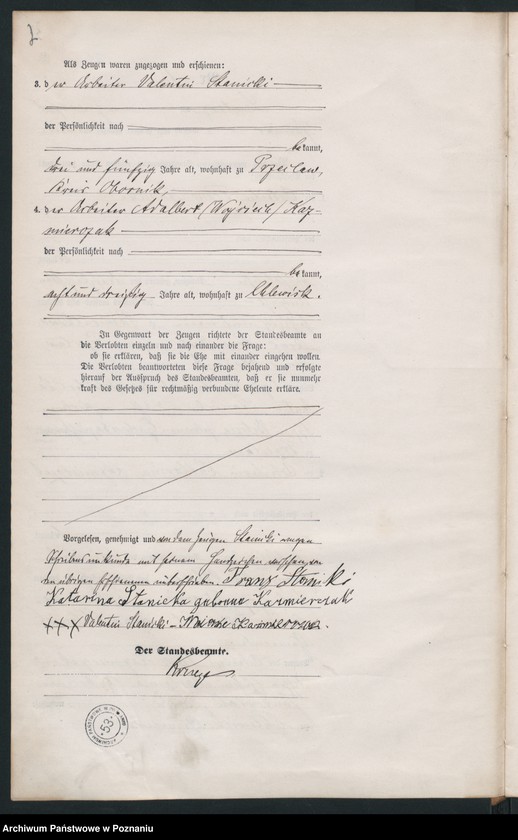 Als Zeugen waren zugezogen und erschienen:
3. der Arbeiter Valentin Stanicki
der Persönlichkeit nach
bekannt,
drei und fünfzig Jahre alt, wohnhaft zu
Kreis Obornik,
4. der Arbeiter Adalbert /Wojciech/ Kaz-
mierczak
der Persönlichkeit nach
bekannt,
acht und dreißig Jahre alt, wohnhaft zu
In Gegenwart der Zeugen richtete der Standesbeamte an
die Verlobten einzeln und nach einander die Frage:
ob sie erklären, daß sie die Ehe mit einander eingehen wollen.
Die Verlobten beantworteten diese Frage bejahend und erfolgte
hierauf der Ausspruch des Standesbeamten, daß er sie nunmehr
kraft des Gesetzes für rechtmäßig verbundene Eheleute erkläre.
Vorgelesen, genehmigt und von dem Zeugen Stanicki wegen
Schreibensunkunde mit seinem Handzeichen versehen von
den übrigen unterschrieben. Franz Stanicki
Katarina Stanicka geborene Kazmierczak
+++ Valentin Stanicki
Der Standesbeamte.
53
Archiwum Państwowe w Poznaniu